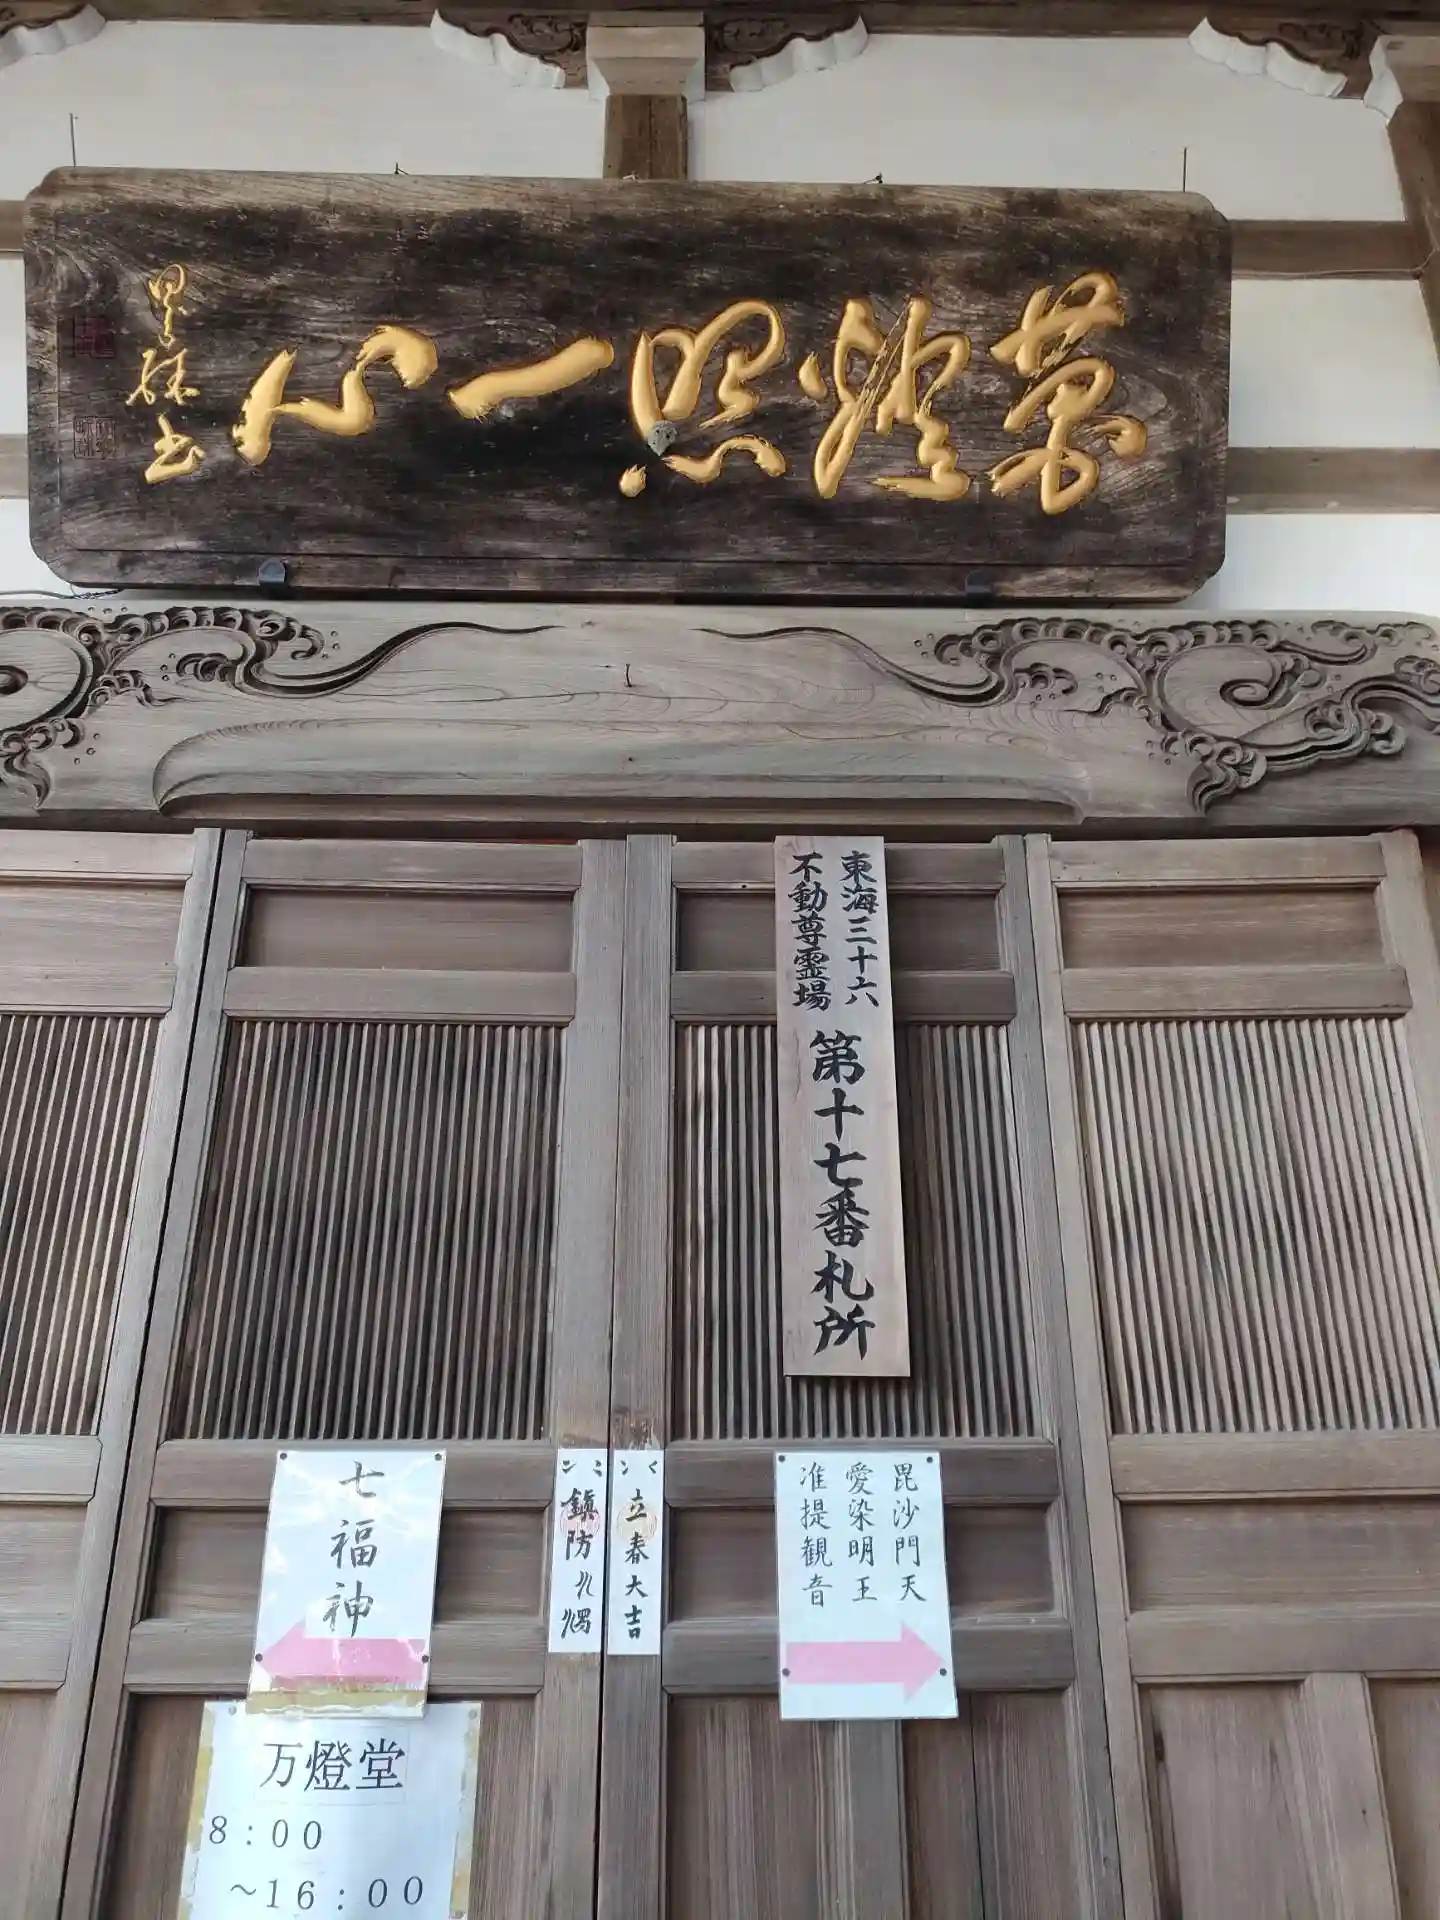 萬燈照一心
東海三十六
不動尊霊場
第十七番札所
七福神
鎮防火燭
立春大吉
毘沙門天
愛染明王
准提観音
万燈堂
8:00
~16:00